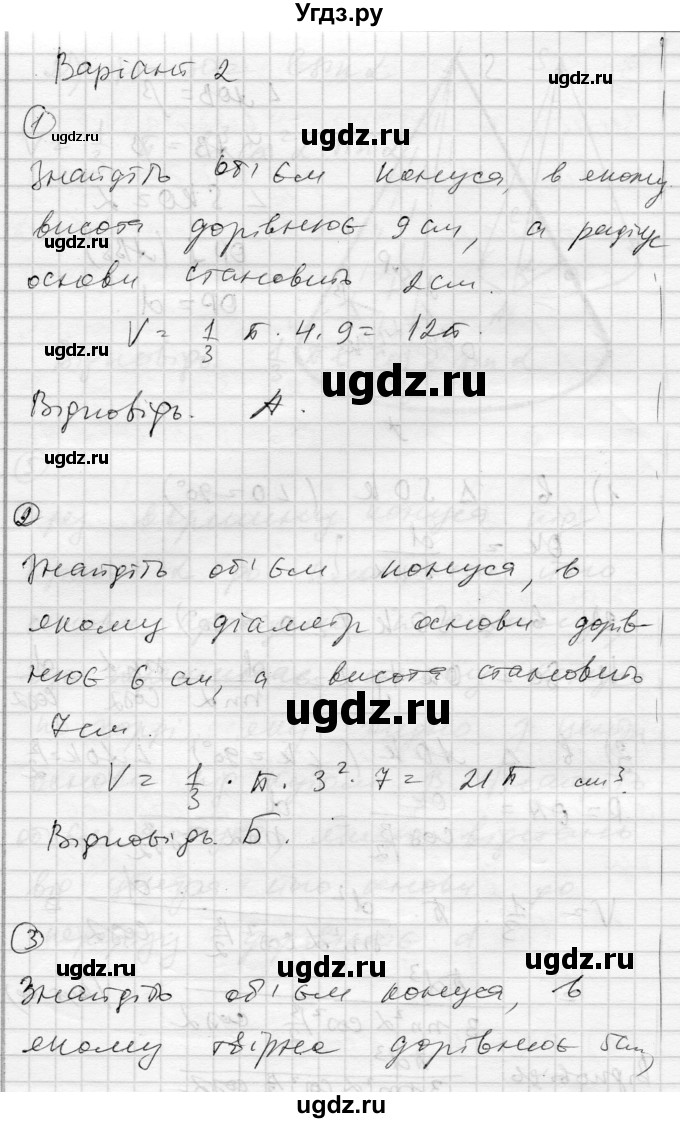 Угдз.ру
Варіант 2
ugdz.ru
ugdz.ru
1
ugdz.ru
ugdz.ru
Знайдіть об'єм конуса, в якому
висота дорівнює 9 см, а радіус
ugdz.ru
основи становить 2 см.
V = 1/3 π · 4 · 9 = 12π.
ugdz.ru
ugdz.ru
Відповідь. А.
ugdz.ru
2
Знайдіть об'єм конуса, в
якому діаметр основи дорів-
нює 6 см, а висота становить
ugdz.ru
7 см.
V = 1/3 · π · 3² · 7 = 21π см³.
Відповідь. Б.
3
ugdz.ru
ugdz.ru
Знайдіть об'єм конуса, в
якому твірна дорівнює 5 см,
ugdz.ru